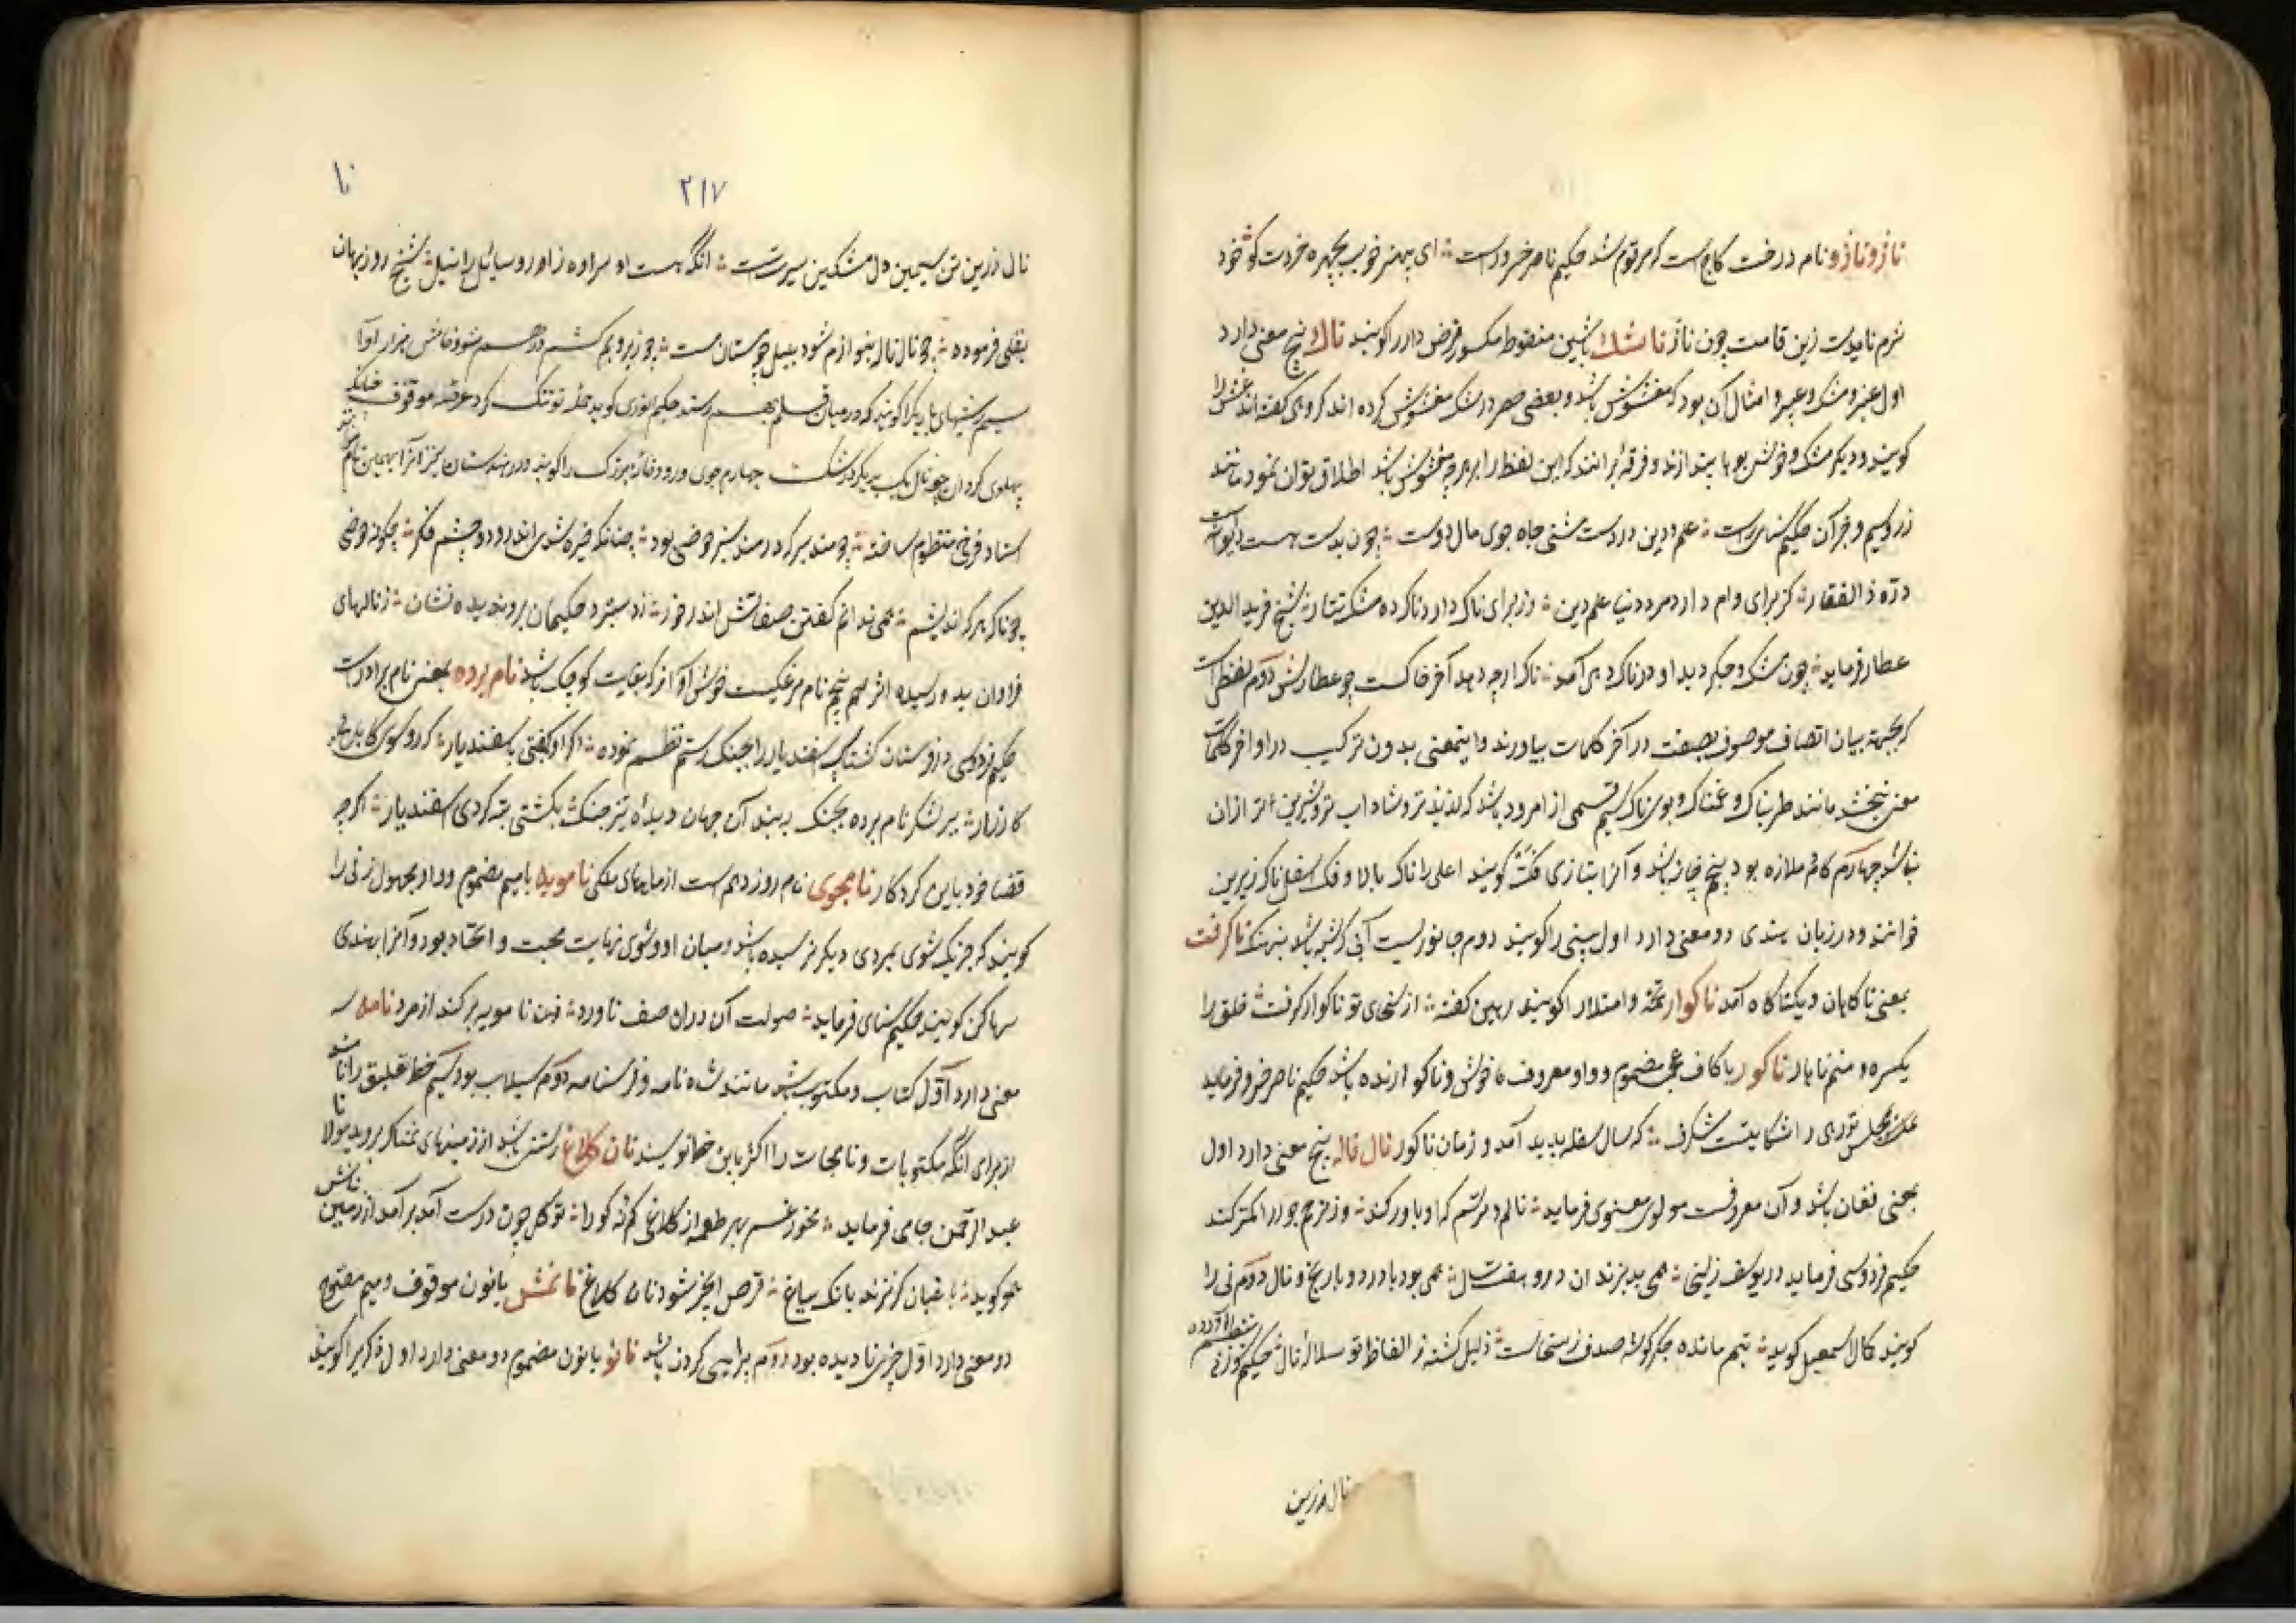 ناژ و ناژو نام درخت کاج است که مرقوم شد حکیم ناصر خسرو راست ای پسر خوب چهره خردت کو خود
شرم نایدت زین قامت چون ناژ ناشک باشین منقوط مکسور قرض دار را گویند ناک پنج معنی دارد
اول عنبر و مشک و عبیر و امثال آن بود که مغشوش باشد و بعضی حصر در مشک مغشوش کرده اند گروهی گفته اند غش را
گویند و دیگر مشک و خوش بوها بیندازند و فرقهٔ برانند که این لفظ را بر هرچه مغشوش باشد اطلاق توان نمود مانند
زر و سیم و جز آن حکیم سنائی راست علم و دین در دست مشتی جاه جوی مال دوست چون بدست مست دیوانه است
درّه ذوالفقار کز برای دام دارد مرد دنیا علم دین وز برای ناک دارد ناک ده مشک تتار شیخ فرید الدین
عطار فرماید چون مشک و جگر دید او در ناک دهی آمد ناک ارچه دهد آخر خاکست چو عطارش دوم لفظی است
که بجهة بیان اتصاف موصوف بصفت در آخر کلمات بیاورند و این معنی بدون ترکیب در اواخر کلمات
معنی نبخشد مانند طربناک و غمناک و بوی ناک سیم قسمی از امرود باشد که لذیذتر و شاداب تر و شیرین تر ازان
نباشد چهارم کام ملازه بود پنجم چانه باشد و آنرا بتازی فک گویند اعلی را ناک بالا و فک اسفل ناک زیرین
خوانند و در زبان هندی دو معنی دارد اول بینی را گویند دوم جانوریست آبی که شبیه باشد بنهنگ ناگرفت
بمعنی ناگاهان و یکتاگاه آمد ناگوار تخمه و امتلا را گویند رهین گفته از سخای تو ناگوار گرفت خلق را
یکسره و منم ناهار ناگور با کاف عجمی مضموم و واو معروف ناخوش و ناگوارنده باشد حکیم ناصر خسرو فرماید
نورهی را شکایت شگرف که سال سفله پدید آمد و زمان ناگور نال ناله پنج معنی دارد اول
بمعنی فغان باشد و آن معروفست مولوی معنوی فرماید نالم و ترسم که او باور کند وز ترحم جور را کمتر کند
حکیم فردوسی فرماید در یوسف زلیخا همی بد بزندان درو هفت سال همی بود با درد و با رنج و نال دوم نی را
گویند کمال اسمعیل گوید یتیم مانده جگرگوشه صدف ز سخات ذلیل گشته ز الفاظ تو سلاله نال حکیم سوزنی منظوم آورده
نال زرین
۲۱۷
نا
نال زرین تن سیمین دل مشکین سیرست آنکه شیخ روزبهان
بقلی فرموده چو نال ناله بنوازم شود بلبل چو مستان مست چو زیر و بم
سیم ریشهای باریک را گویند که در میان قلم بهم رسد حکیم انوری گوید
پهلوی گردان چو نال یک بدیگر درشکست چهارم جوی و رود خانه بزرگ را گویند و در هندستان نیز آنرا بهمین نام
استاد فرخی منظوم ساخته چو مندبیر که در مندبیر حوضی بود چنانکه خیره شدی اندر و دو چشم فکر چگونه حوضی
چونانکه هرکه اندیشم همی ندانم گفتن صفاتش اندر خور زدستبرد حکیمان برو پدید نشان ز نالهای
فراوان بدو رسیده اثر پنجم نام مرغکیست خوش آواز که بغایت کوچک باشد نام برده بمعنی نام برادر است
حکیم فردوسی در داستان گشتاسب اسفندیار را بجنگ رستم نظم نموده اگر او گفتی باسفندیار که رو سوی کابل
کارزار ببر لشکر نام برده بجنگ ببند آن جهان دیدهٔ تیز چنگ بکشتی بته کردی اسفندیار اگرچه
قضا خود باین کرد کار نامجوی نام روز دهم است از ماهای ملکی نامویه با میم مضموم و واو مجهول زنی را
گویند که جز یک شوی بمردی دیگر نرسیده باشد و میان او و شوی نهایت محبت و اتحاد بود و آنرا بهندی
سهاگن گویند حکیم سنائی فرماید صولت آن دران صف ناورد فتن نامویه برکند از مرد نامه سه
معنی دارد اول کتاب و مکتوب باشد مانند شه نامه و فرسنامه دوم سیلاب بود سیم خط تعلیق را نامند
از برای آنکه مکتوبات و نامجات را اکثر باین خط نویسند نان کلاغ رستنی باشد از زمینهای نمناک بروید مولانا
عبد الرحمن جامی فرماید مخور غم بهر طعمه از کلاغی کم نه کو را تو کل چون درست آمد برآمد از زمین نانش
هم گوید باغبان گر نزند بانک بباغ قرص انجز شود نان کلاغ نانمش بانون موقوف و میم مفتوح
دو معنی دارد اول چیزی نادیده بود دوم پرائی کردن باشد نانو بانون مضموم دو معنی دارد اول ذکر را گویند